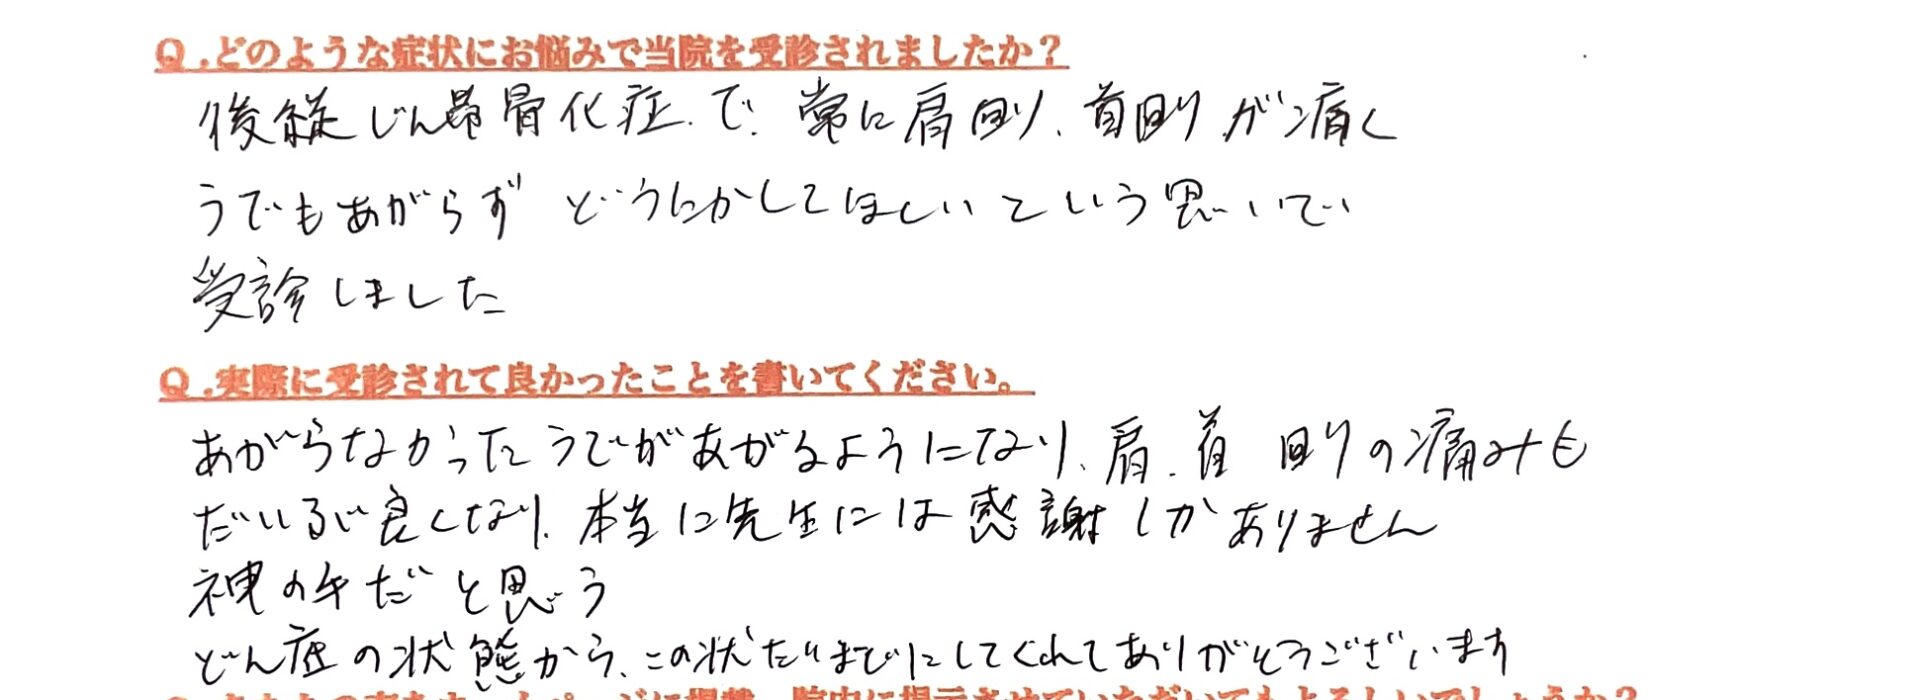 Q.どのような症状にお悩みで当院を受診されましたか？
後縦じん帯骨化症で、常に肩回り、首回りが痛く
うでもあがらず どうにかしてほしいという思いで
受診しました
Q.実際に受診されて良かったことを書いてください。
あがらなかったうでがあがるようになり、肩、首 回りの痛みも
だいぶ良くなり、本当に先生には感謝しかありません
神の手だと思う
どん底の状態から、この状態までにしてくれてありがとうございます